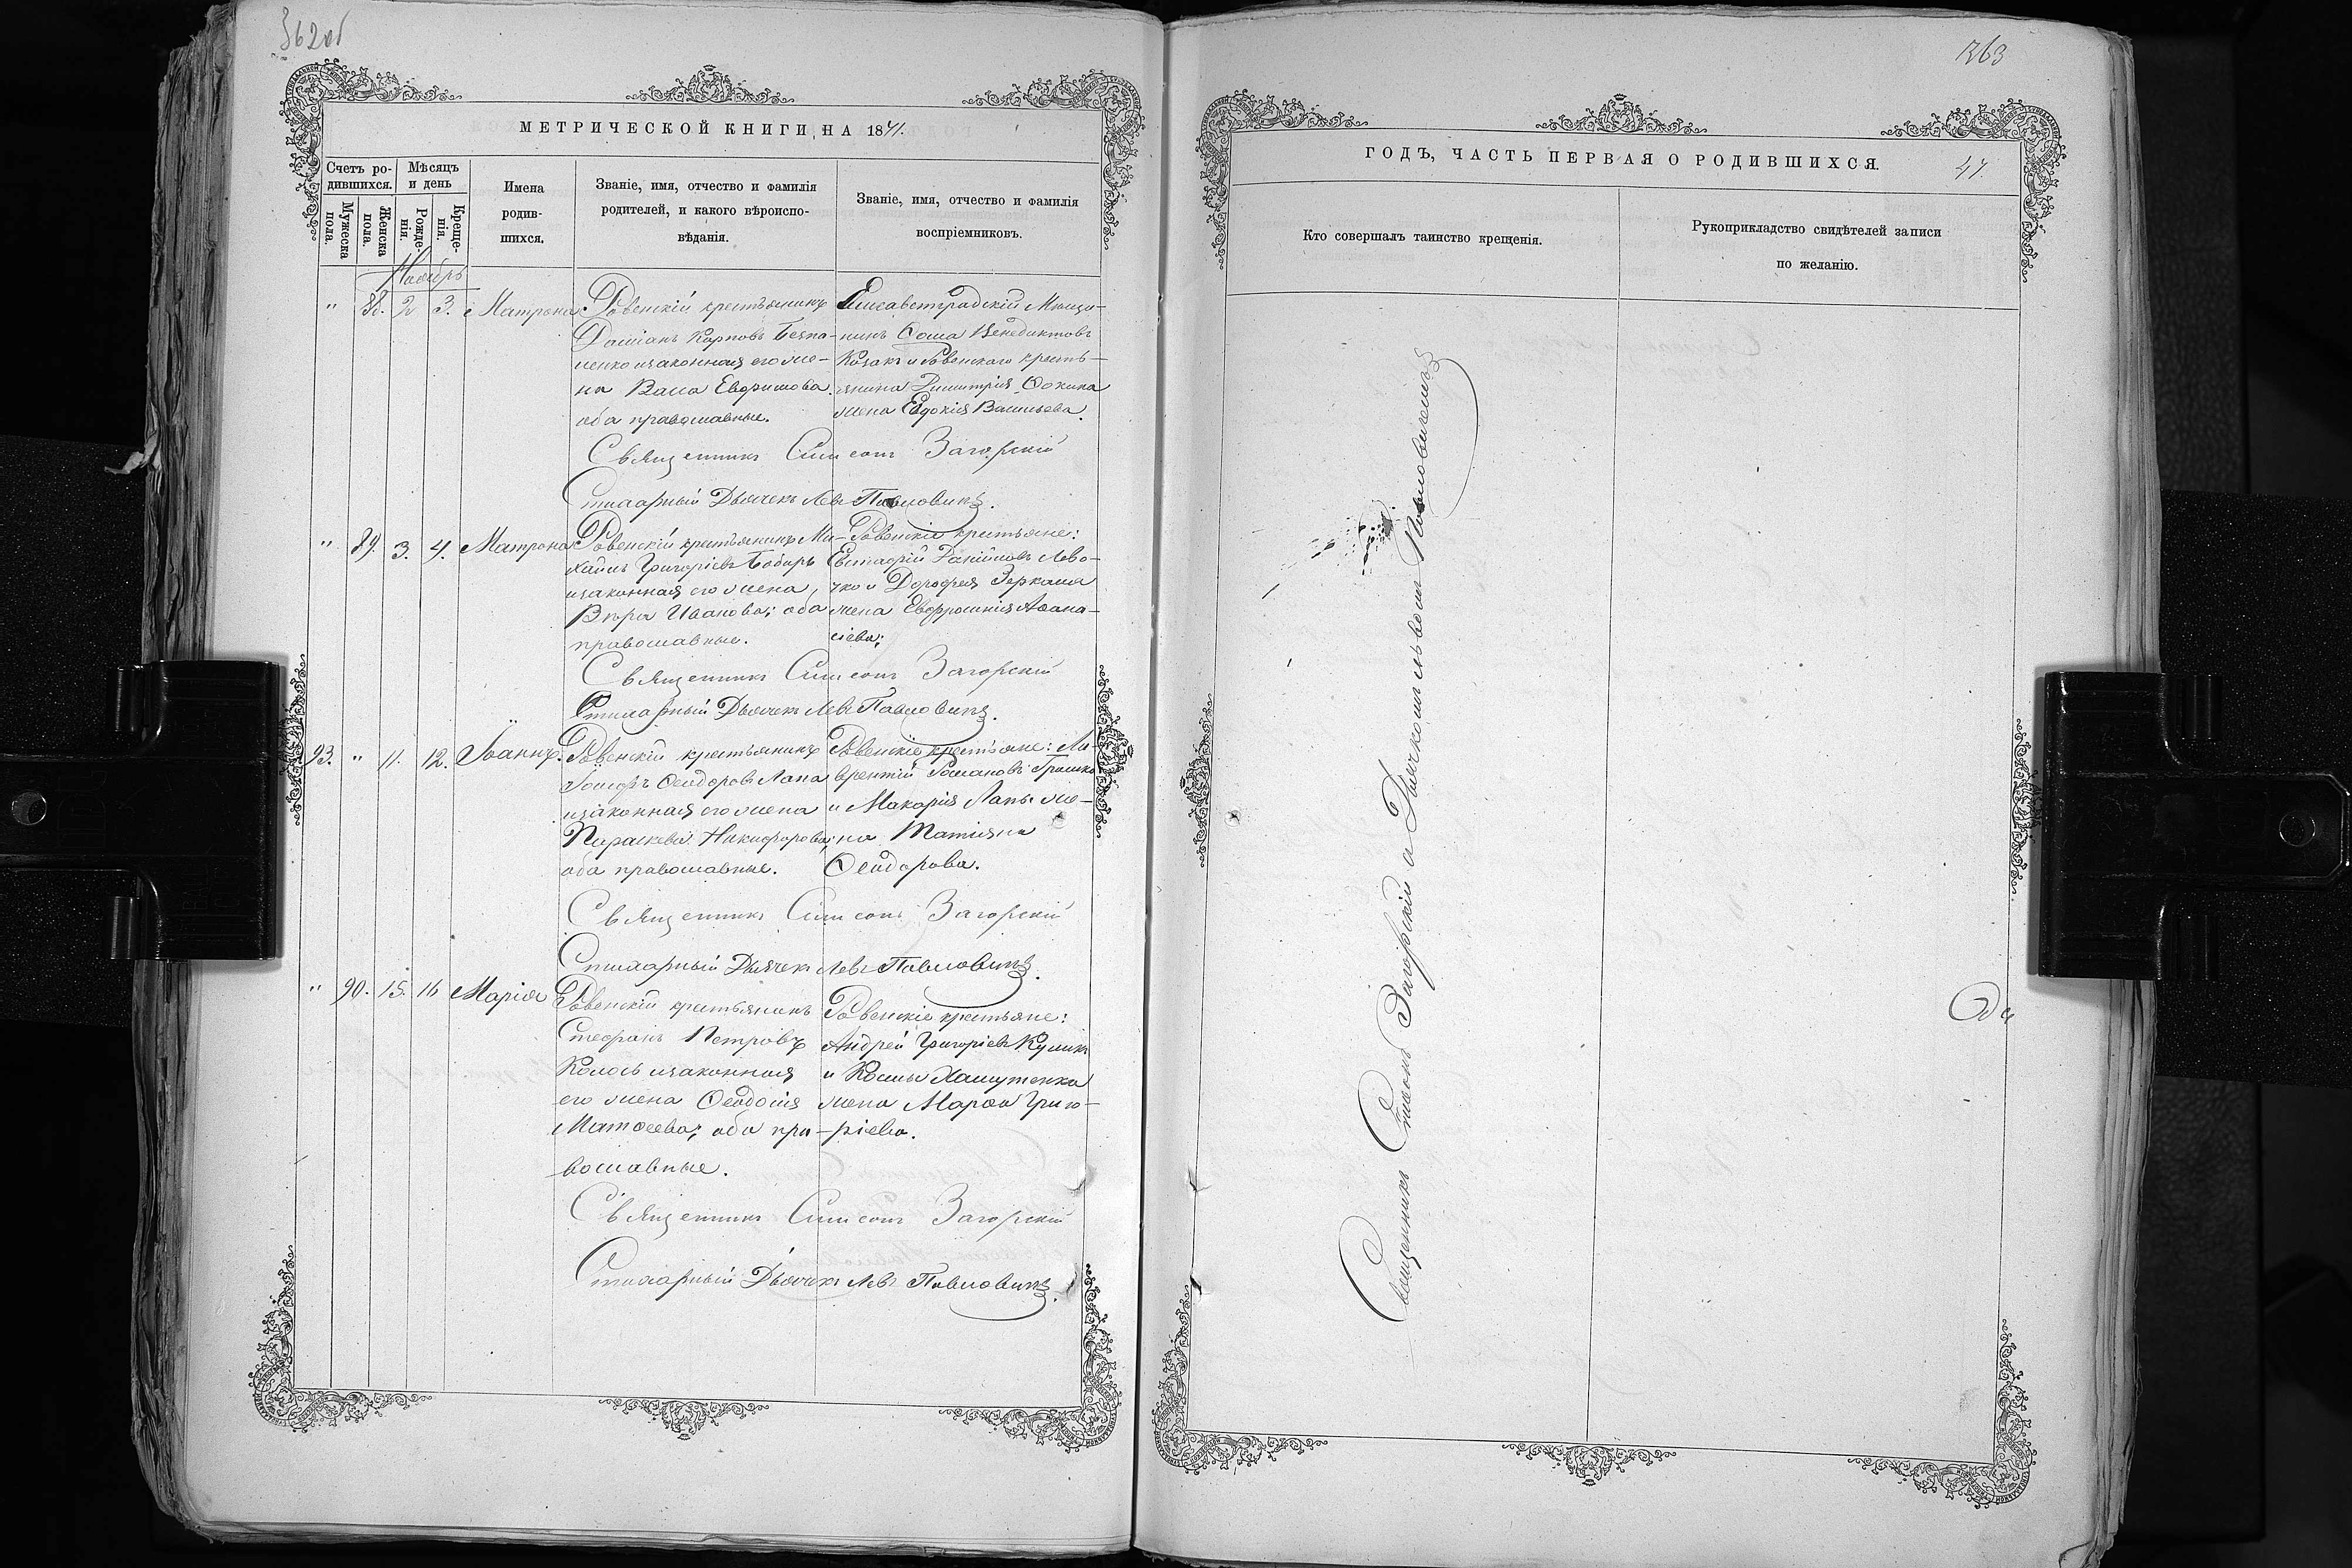 362об
МЕТРИЧЕСКОЙ КНИГИ, НА 1871.
Счетъ ро-
дившихся.
Мѣсяцъ
и день
Мужеска
пола.
Женска
пола.
Рожде-
нія.
Креще-
нія.
Имена
родив-
шихся.
Званіе, имя, отчество и фамилія
родителей, и какого вѣроиспо-
вѣданія.
Званіе, имя, отчество и фамилія
воспріемниковъ.
Ноябрь
" 88. 2 3. Матрона
Ровенскій крестьянинъ
Даміанъ Карповъ
и законная его же-
на Васса
оба православные.
Елисаветградскій Мѣща-
нинъ Ѳома Венедиктовъ
Козакъ и Ровенскаго кресть-
янина Димитрія Ѳокина
жена Евдокія Васильева.
Священникъ Симеонъ Загорскій
Стихарный Дьячекъ Левъ Павловичъ.
" 89. 3. 4. Матрона
Ровенскій крестьянинъ Ми-
хаилъ Григорьевъ Бобырь
и законная его жена,
Вѣра Иванова; оба
православные.
Ровенскіе крестьяне:
Евстафій Даніиловъ Лево-
чко и Дорофея Зеркаля
жена Евфросинія Аѳана-
сіева;
Священникъ Симеонъ Загорскій
Стихарный Дьячекъ Левъ Павловичъ.
93. " 11. 12. Іоаннъ.
Ровенскій крестьянинъ
Іосифъ Ѳеодоровъ Лапа
и законная его жена
Параскева Никифорова;
оба православные.
Ровенскіе крестьяне: Ла-
врентій Романовъ Грошко
и Макарія Лапы же-
на Татіяна
Ѳеодорова.
Священникъ Симеонъ Загорскій
Стихарный Дьячекъ Левъ Павловичъ.
" 90. 15. 16 Марія
Ровенскій крестьянинъ
Стефанъ Петровъ
Колосъ и законная
его жена Ѳеодосія
Матѳеева; оба пра-
вославные.
Ровенскіе крестьяне:
Андрей Григорьевъ Куликъ
и Космы
жена Марѳа Григо-
ріева.
Священникъ Симеонъ Загорскій
Стихарный Дьячекъ Левъ Павловичъ.
363
ГОДЪ, ЧАСТЬ ПЕРВАЯ О РОДИВШИХСЯ.
47.
Кто совершалъ таинство крещенія.
Рукоприкладство свидѣтелей записи
по желанію.
Священникъ Симеонъ Загорскій съ Дьячкомъ Львомъ Павловичемъ